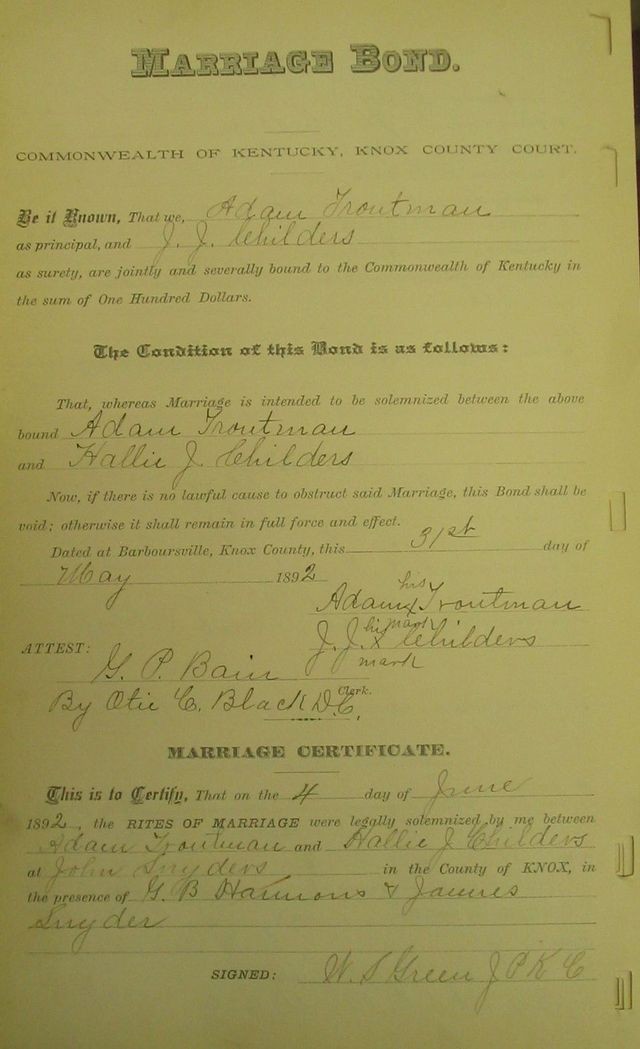 MARRIAGE BOND.
COMMONWEALTH OF KENTUCKY, KNOX COUNTY COURT.
Be it Known, That we, Adam Troutman
as principal, and J. J. Childers
as surety, are jointly and severally bound to the Commonwealth of Kentucky in
the sum of One Hundred Dollars.
The Condition of this Bond is as follows:
That, whereas Marriage is intended to be solemnized between the above
bound Adam Troutman
and Hallie J. Childers
Now, if there is no lawful cause to obstruct said Marriage, this Bond shall be
void; otherwise it shall remain in full force and effect.
Dated at Barboursville, Knox County, this 31st day of
May 1892
his
Adam x Troutman
his mark
J. J. x Childers
mark
ATTEST:
G. P. Bain
Clerk.
By Otie C. Black D.C.
MARRIAGE CERTIFICATE.
This is to Certify, That on the 4 day of June
1892, the RITES OF MARRIAGE were legally solemnized by me between
Adam Troutman and Hallie J Childers
at John Snyders in the County of KNOX, in
the presence of G. B Hammons & James
Snyder
SIGNED: W. S Green J P K C